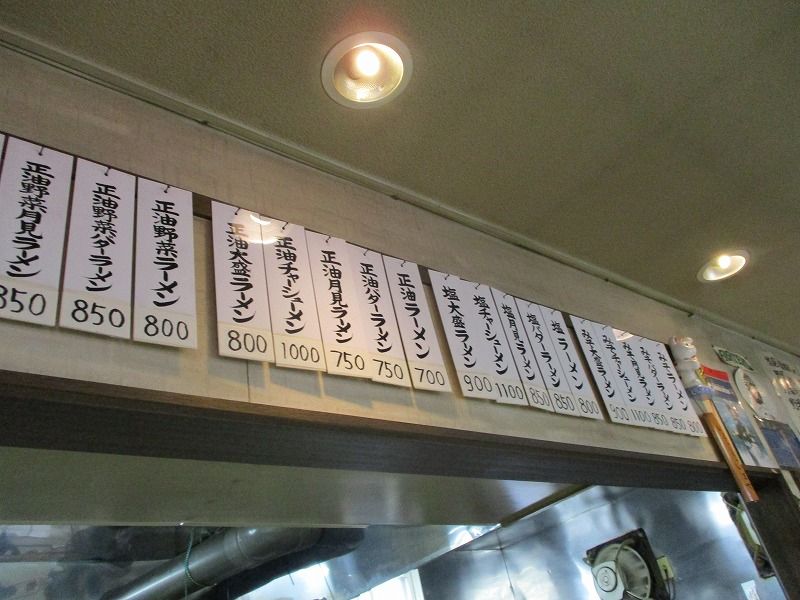 正油野菜月見ラーメン
850
正油野菜バターラーメン
850
正油野菜ラーメン
800
正油大盛ラーメン
800
正油チャーシューメン
1000
正油月見ラーメン
750
正油バターラーメン
750
正油ラーメン
700
塩大盛ラーメン
900
塩チャーシューメン
1100
塩月見ラーメン
850
塩バターラーメン
850
塩ラーメン
800
みそ大盛ラーメン
900
みそチャーシューメン
1100
みそ月見ラーメン
850
みそバターラーメン
850
みそラーメン
800